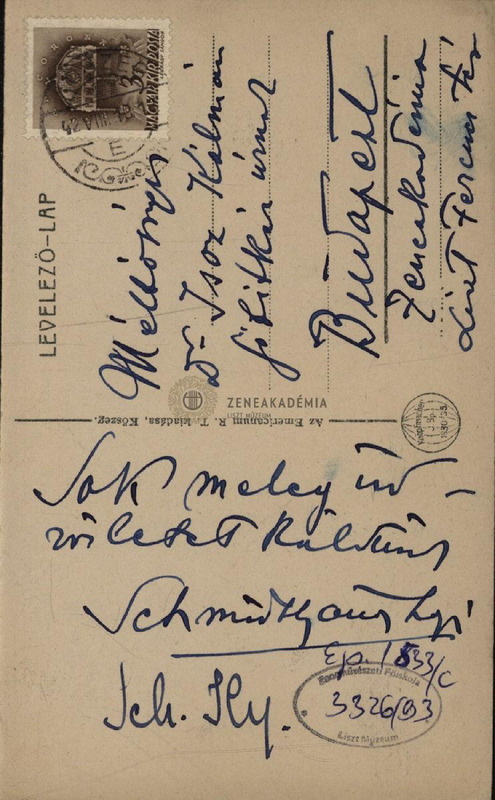 LEVELEZŐ-LAP
MAGYAR KIR. POSTA
Méltóságos
Dr Isoz Kálmán
főtitkár úrnak
Budapest
Zeneakadémia
Liszt Ferenc tér
ZENEAKADÉMIA
LISZT MÚZEUM
Az Emericanum R. T. kiadása, Kőszeg.
Sok meleg üd-
vözletet küldünk
Sch. Ky.
Ep. 1533/c
Zeneművészeti Főiskola
3326/93
Liszt Múzeum